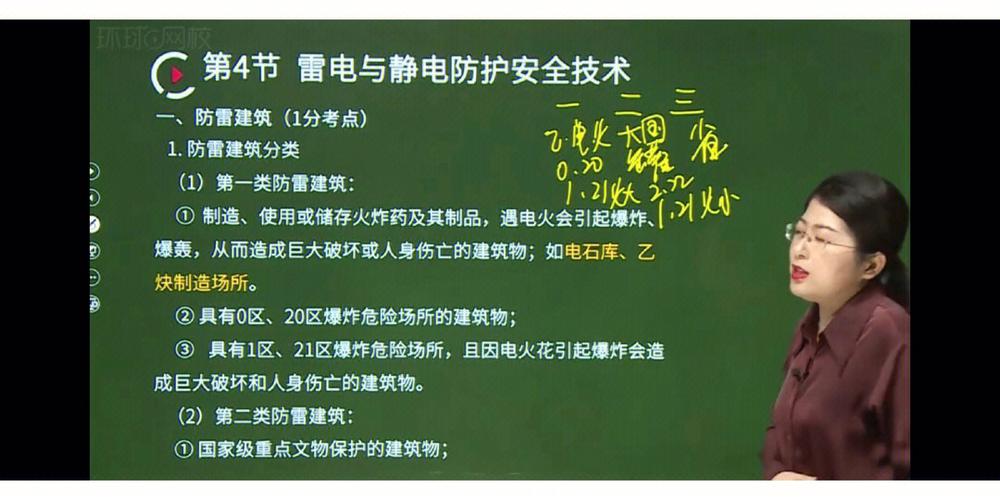 环球网校
第4节 雷电与静电防护安全技术
一 二 三
一、防雷建筑（1分考点）
乙.电火 大国 省
1. 防雷建筑分类
0.20
（1）第一类防雷建筑：
1.21火大 2.22
1.21火小
① 制造、使用或储存火炸药及其制品，遇电火会引起爆炸、
爆轰，从而造成巨大破坏或人身伤亡的建筑物；如电石库、乙
炔制造场所。
② 具有0区、20区爆炸危险场所的建筑物；
③ 具有1区、21区爆炸危险场所，且因电火花引起爆炸会造
成巨大破坏和人身伤亡的建筑物。
（2）第二类防雷建筑：
① 国家级重点文物保护的建筑物；